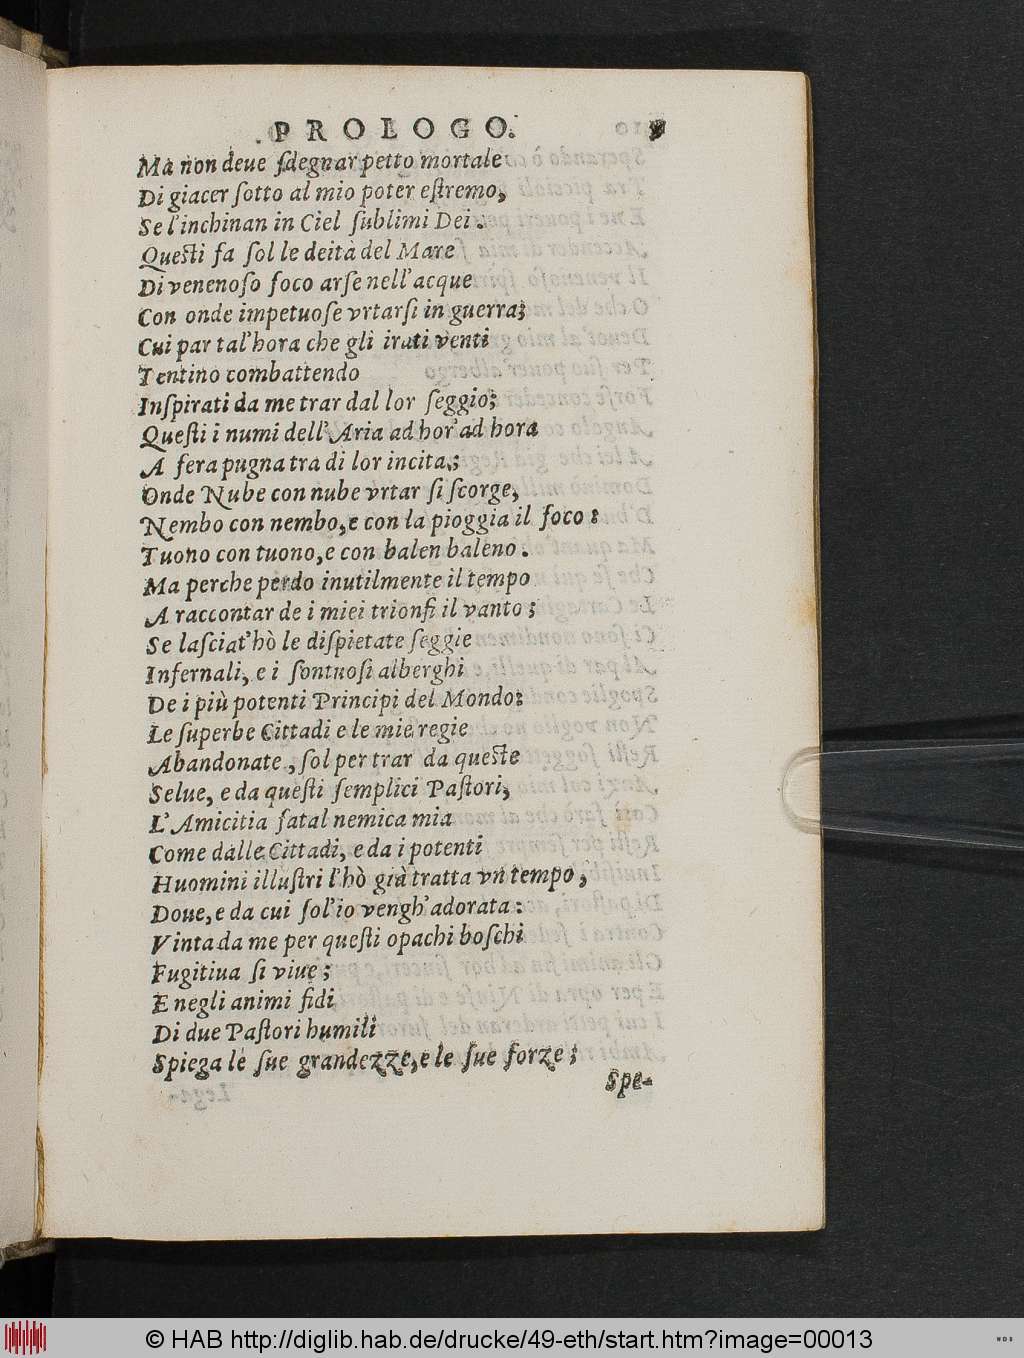 PROLOGO. 9
Ma non deue ſdegnar petto mortale
Di giacer ſotto al mio poter eſtremo,
Se l'inchinan in Ciel ſublimi Dei.
Queſti fa ſol le deità del Mare
Di venenoſo foco arſe nell'acque
Con onde impetuoſe vrtarſi in guerra;
Cui par tal'hora che gli irati venti
Tentino combattendo
Inſpirati da me trar dal lor ſeggio;
Queſti i numi dell'Aria ad hor'ad hora
A fera pugna tra di lor incita;
Onde Nube con nube vrtar ſi ſcorge,
Nembo con nembo, e con la pioggia il foco:
Tuono con tuono, e con balen baleno.
Ma perche perdo inutilmente il tempo
A raccontar de i miei trionfi il vanto;
Se laſciat'hò le diſpietate ſeggie
Infernali, e i ſontuoſi alberghi
De i più potenti Principi del Mondo:
Le ſuperbe Cittadi e le mie regie
Abandonate, ſol per trar da queſte
Selue, e da queſti ſemplici Paſtori,
L'Amicitia fatal nemica mia
Come dalle Cittadi, e da i potenti
Huomini illuſtri l'hò già tratta vn tempo,
Doue, e da cui ſol'io vengh'adorata:
Vinta da me per queſti opachi boſchi
Fugitiua ſi viue;
E negli animi fidi
Di due Paſtori humili
Spiega le ſue grandezze, e le ſue forze;
Spe-
© HAB http://diglib.hab.de/drucke/49-eth/start.htm?image=00013